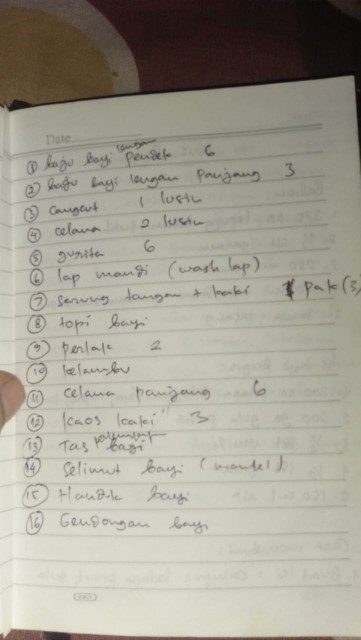 Date
① baju bayi lengan pendek 6
② baju bayi lengan panjang 3
③ cangcut 1 lusin
④ celana 2 lusin
⑤ gurita 6
⑥ lap mandi (wash lap)
⑦ sarung tangan + kaki 1 pak (3)
⑧ topi bayi
⑨ perlak 2
⑩ kelambu
⑪ celana panjang 6
⑫ kaos kaki 3
⑬ Tas bayi
⑭ Selimut bayi (mantel)
⑮ Handuk bayi
⑯ Gendongan bayi